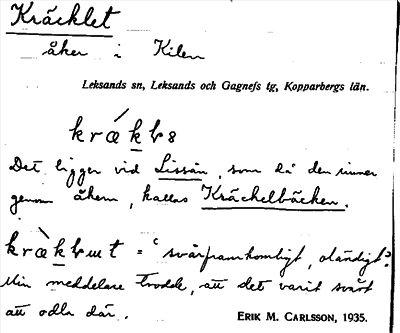 Kräcklet
åker i Kilen
Leksands sn, Leksands och Gagnefs tg, Kopparbergs län.
Det ligger vid Lissån, som då den rinner
genom åkern, kallas Kräckelbäcken.
= "svårframkomligt, oländigt".
Min meddelare trodde, att det varit svårt
att odla där.
ERIK M. CARLSSON, 1935.